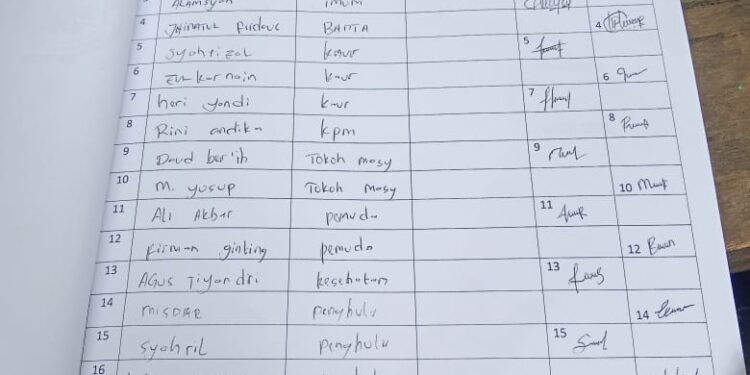 ALAMSYAH imum
4 JAINATUL Firdaus BAITA 4
5 syahrizal kaur 5
6 ZULkarnain kaur 6
7 heri yandi kaur 7
8 Rini andika kpm 8
9 Daud ber'ih Tokoh masy 9
10 M. yusup Tokoh masy 10
11 Ali Akbar pemuda 11
12 Firman ginting pemuda 12
13 AGUS Tiyandri kesehatan 13
14 MISDAR penghulu 14
15 syahril penghulu 15
16